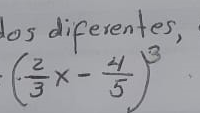 dos diferentes,
(2/3 x - 4/5)^3